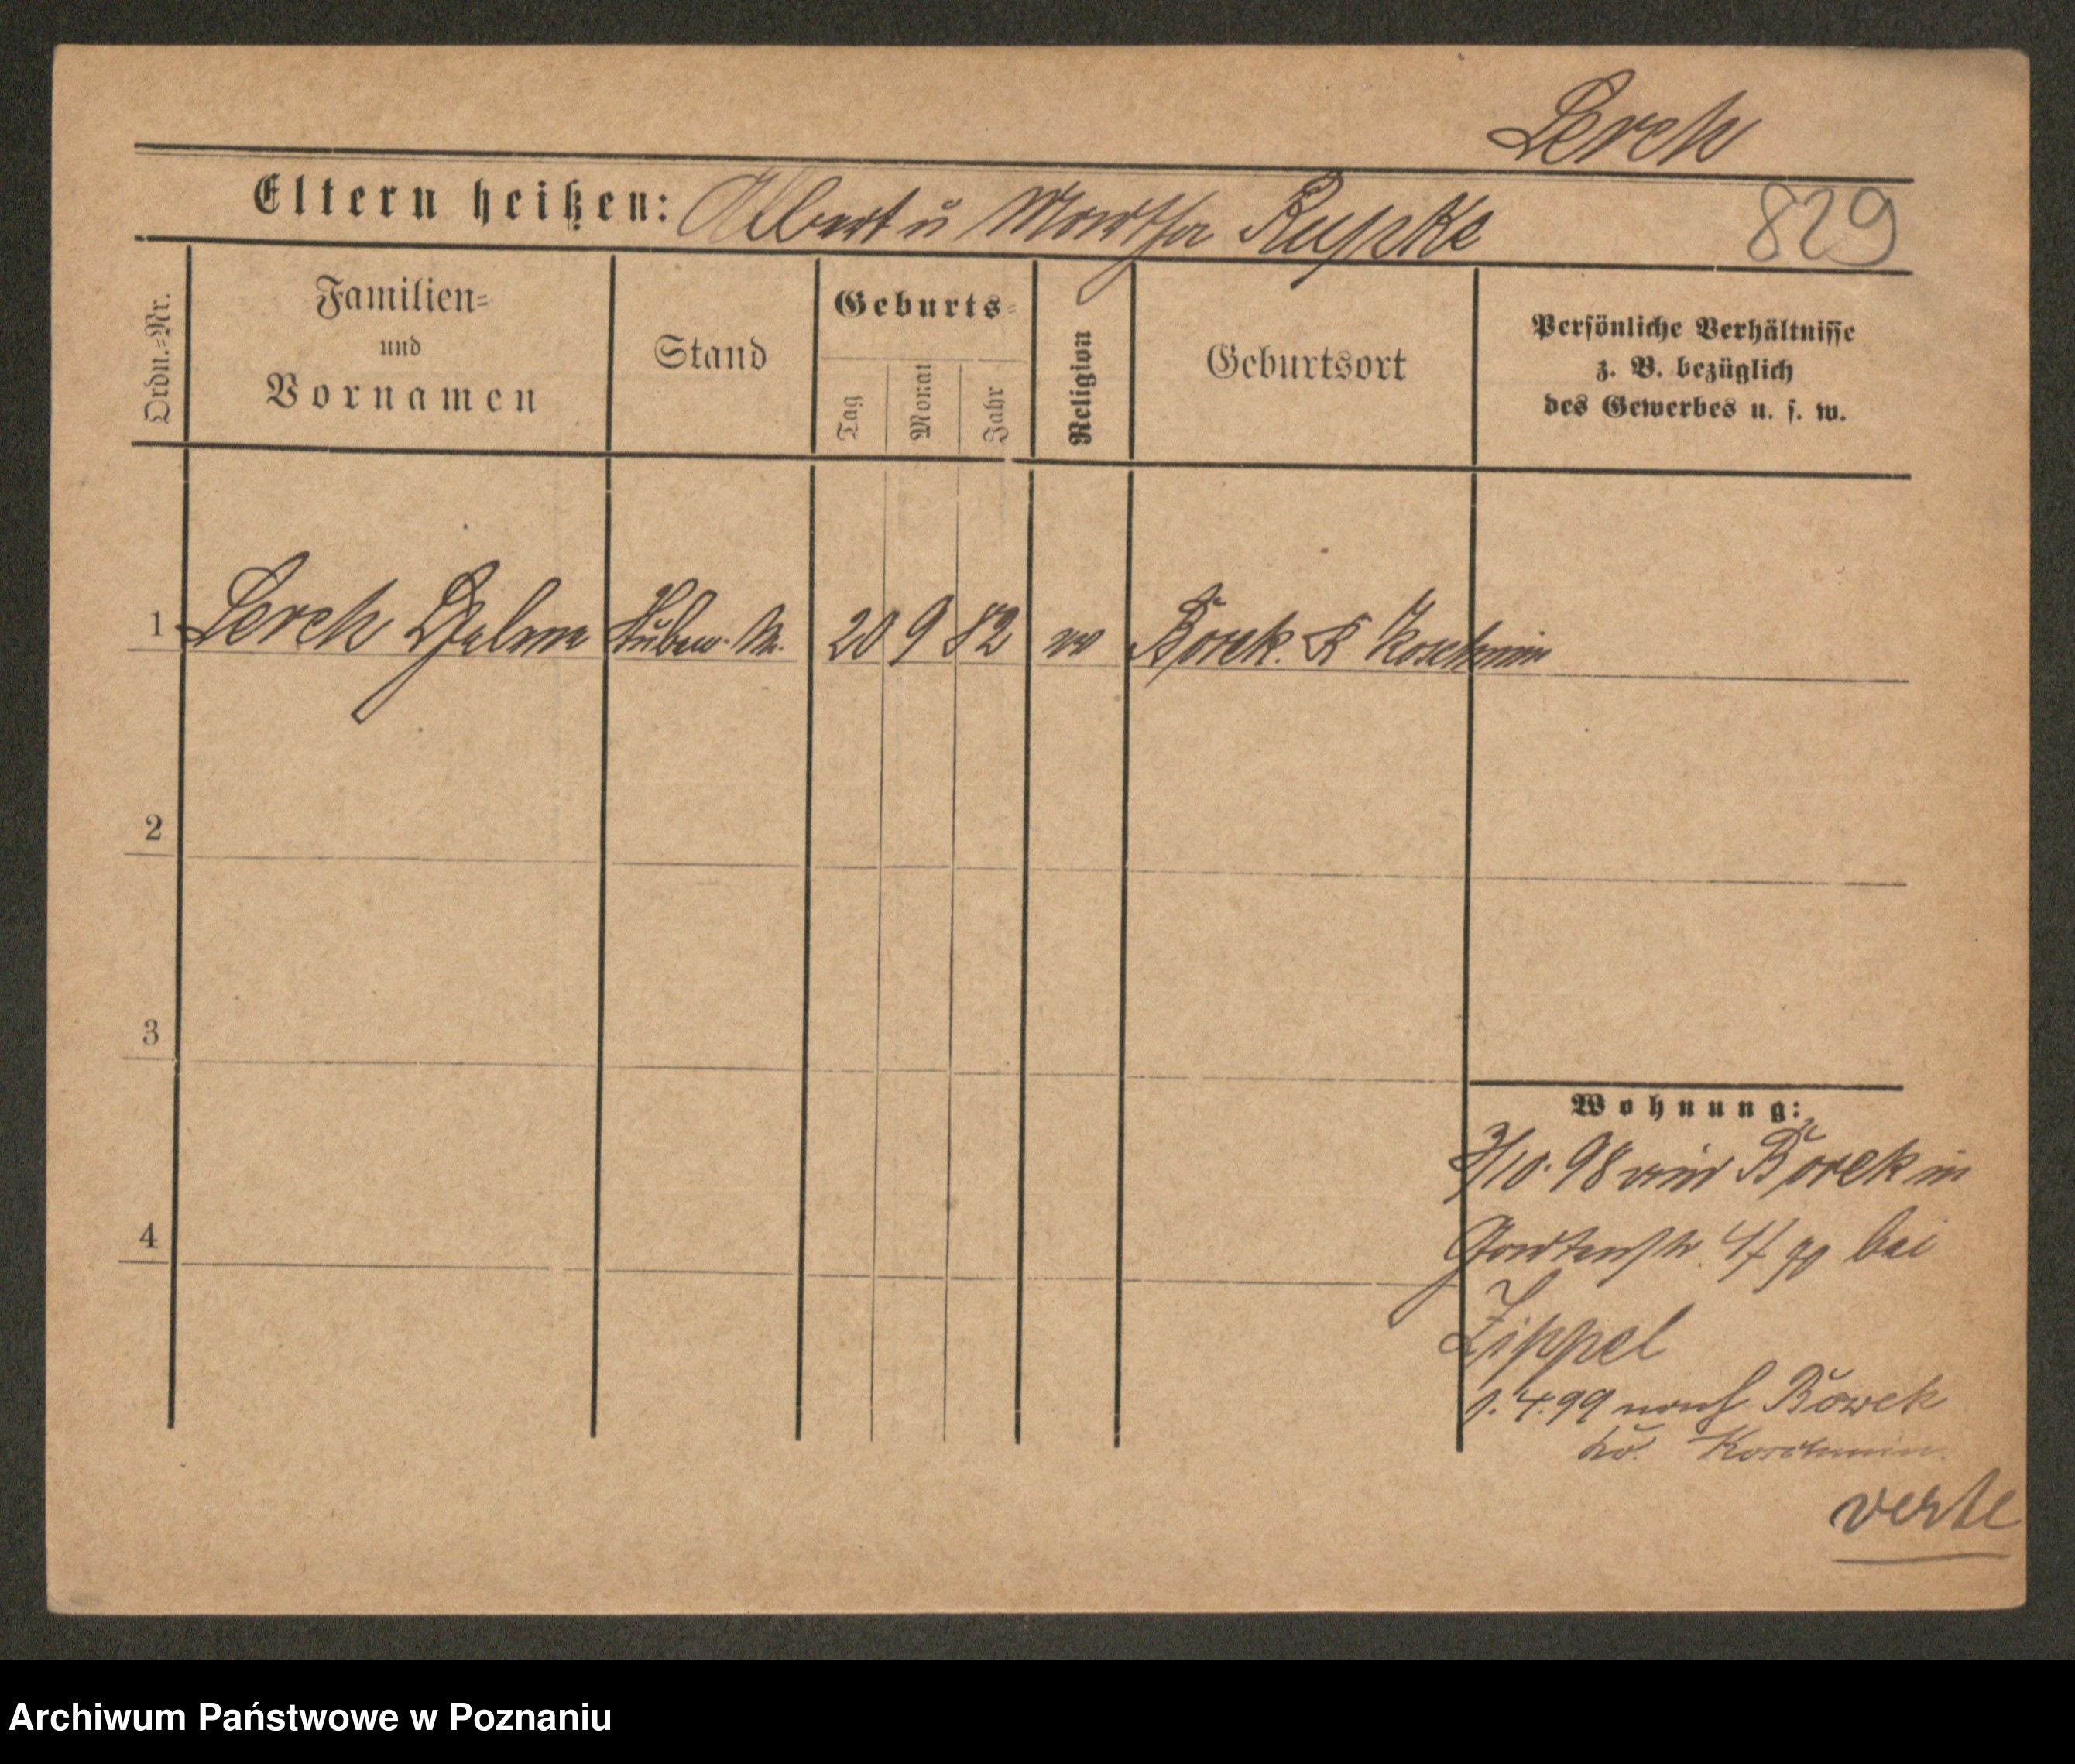 Lerch
Eltern heißen: Albert u Martha Rypke
829
Ordn.-Nr.
Familien=
und
Vornamen
Stand
Geburts=
Tag
Monat
Jahr
Religion
Geburtsort
Persönliche Verhältnisse
z. B. bezüglich
des Gewerbes u. s. w.
1 Lerch Stuben. M. 20 9 82 Borek. K Koschmin
2
3
4
Wohnung:
3/10. 98 Borek in
Gartenstr. bei
Zippel
1. 4. 99 nach Borek
Koschmin.
verte
Archiwum Państwowe w Poznaniu